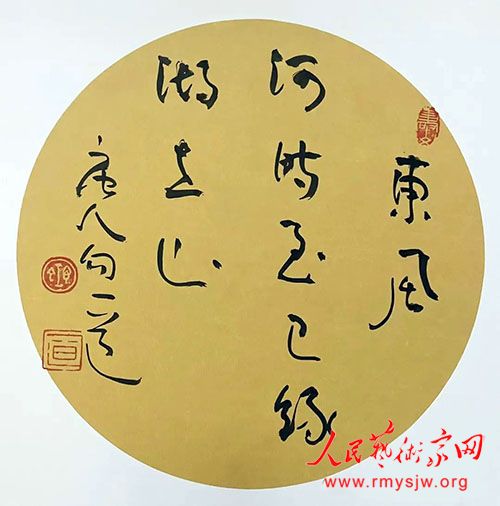 東風
何時至已綠
湖上山
唐人句一道
人民藝術家网
www.rmysjw.org